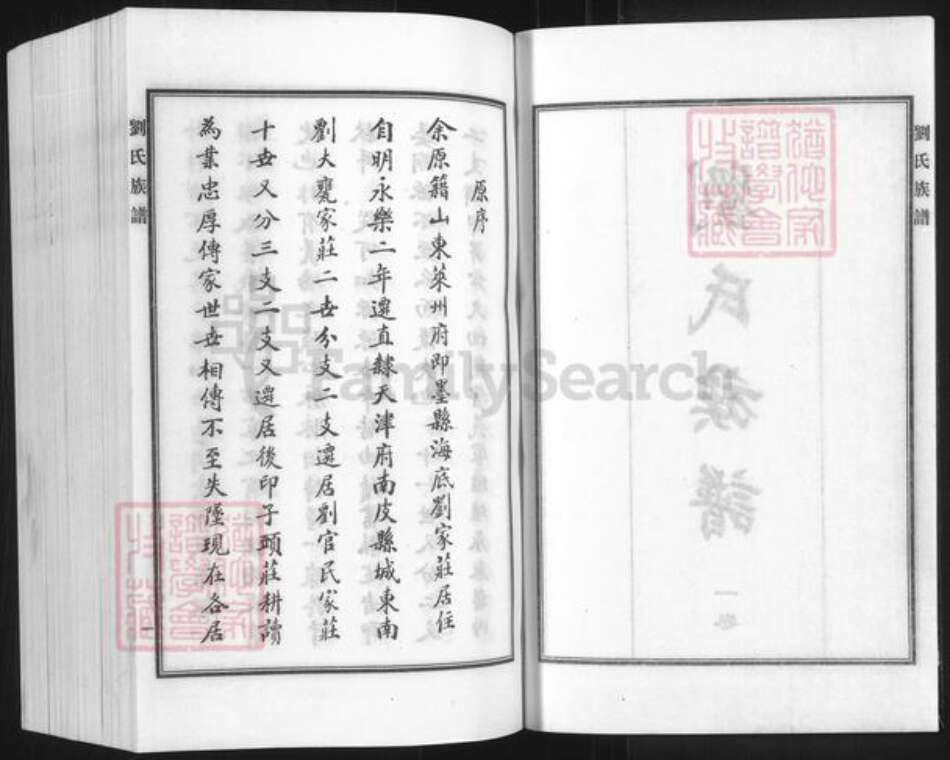 劉氏族譜
氏族譜
一卷
原序
余原籍山東萊州府即墨縣海底劉家莊居住
自明永樂二年遷直隸天津府南皮縣城東南
劉大甕家莊二世分支二支遷居劉官民家莊
十世又分三支二支又遷居後印子頭莊耕讀
為業忠厚傳家世世相傳不至失墜現在各居
劉氏族譜
一
FamilySearch